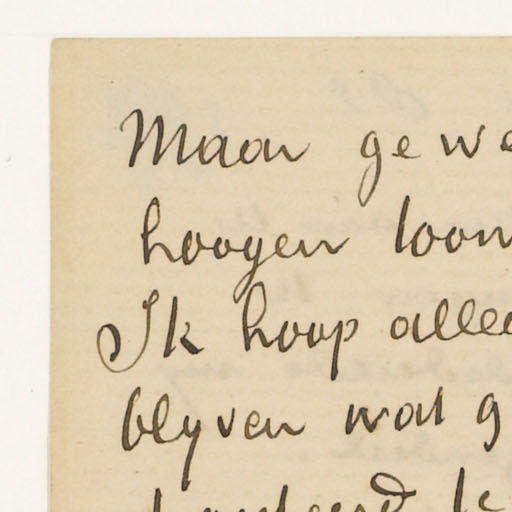 Maar gewe
hoogen loon
Ik hoop allee
blyven wat g